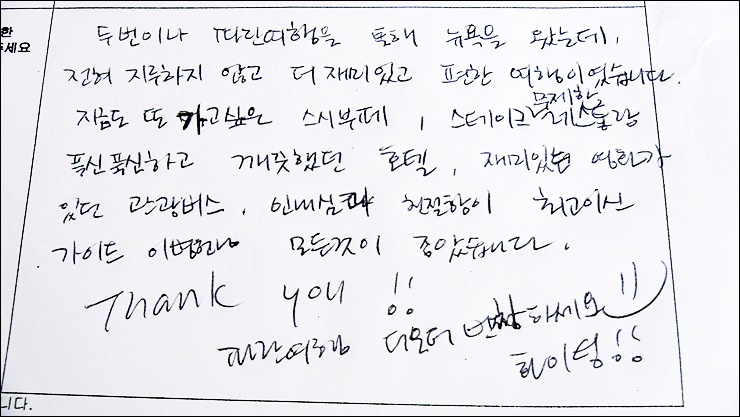 한
주세요
두번이나 파란여행을 통해 뉴욕을 왔는데,
전혀 지루하지 않고 더 재미있고 편한 여행이었습니다.
지금도 또 가고싶은 스시부페, 스테이크 무제한 레스토랑
푹신푹신하고 깨끗했던 호텔, 재미있던 영화가
있던 관광버스, 인내심과 친절함이 최고이신
가이드 모든것이 좋았습니다.
Thank you !!
파란여행 더욱더 번창하세요 :)
화이팅!!
니다.